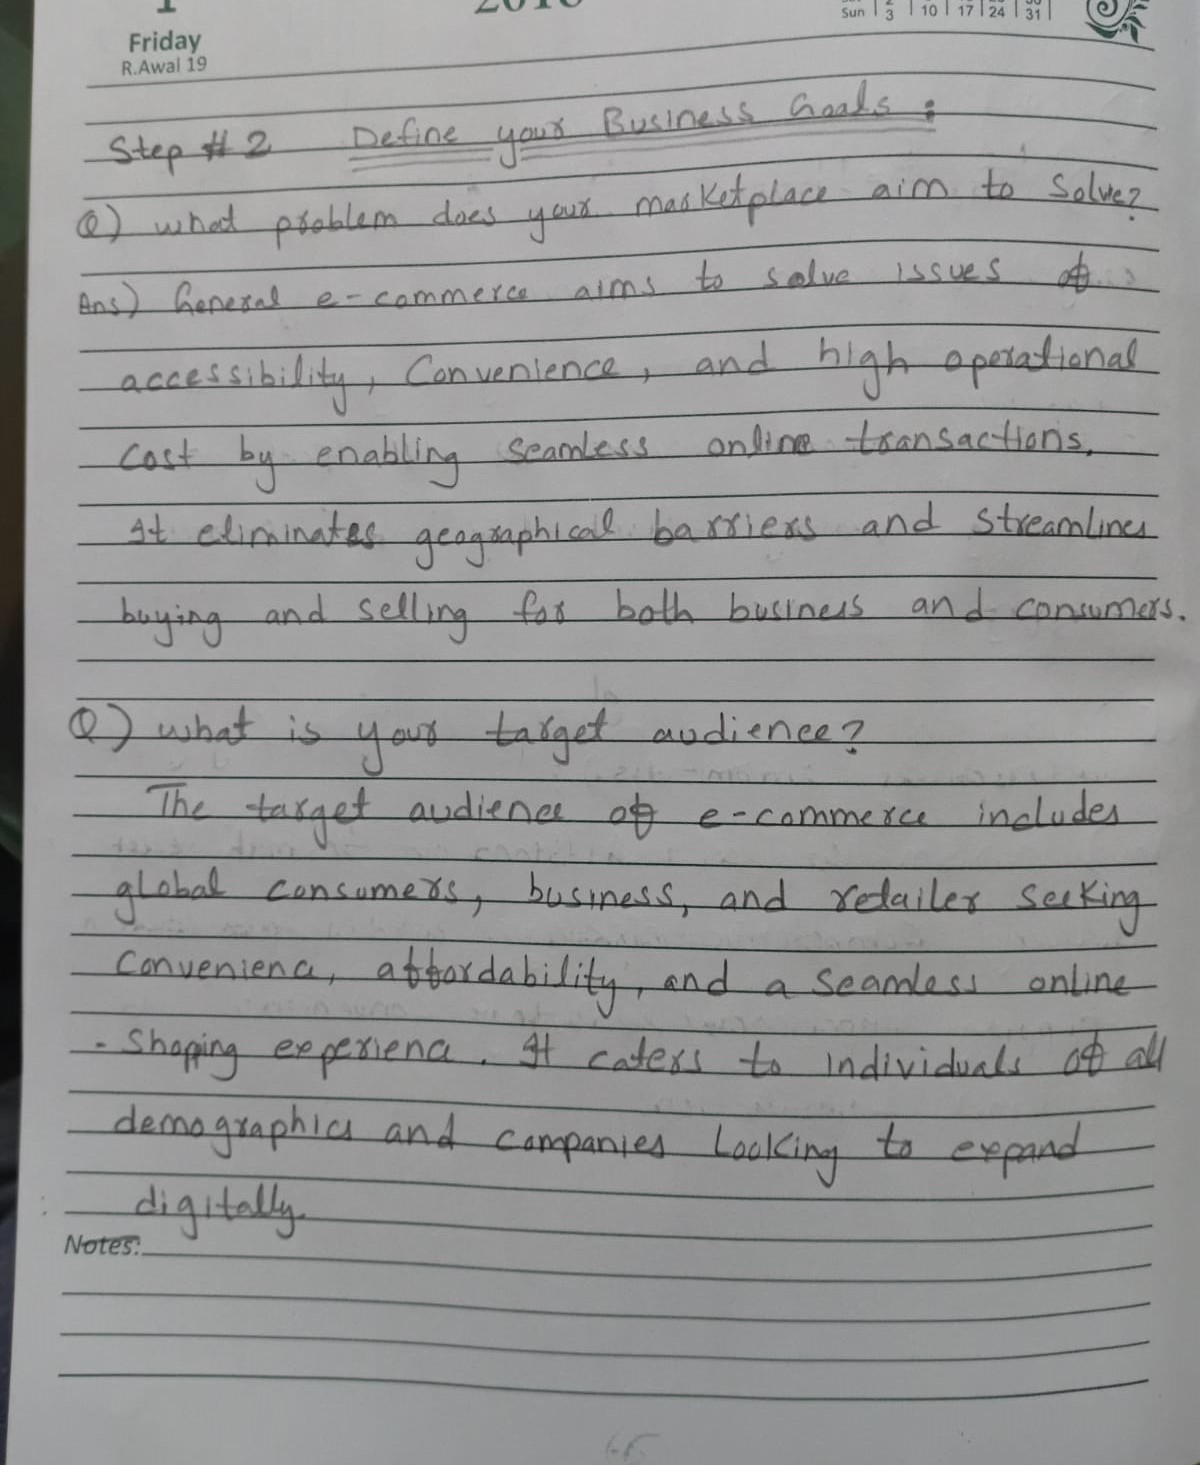 Friday
R.Awal 19
Sun 3 10 17 24 31
Step # 2 Define your Business Goals :
Q) what problem does your marketplace aim to solve?
Ans) General e-commerce aims to solve issues of
accessibility, Convenience, and high operational
cost by enabling seamless online transactions.
It eliminates geographical barriers and streamlines
buying and selling for both business and consumers.
Q) what is your target audience?
The target audience of e-commerce includes
global consumers, business, and retailer seeking
convenienc, affordability, and a seamless online
- Shopping experienc. It caters to individuals of all
demographics and companies looking to expand
digitally.
Notes: